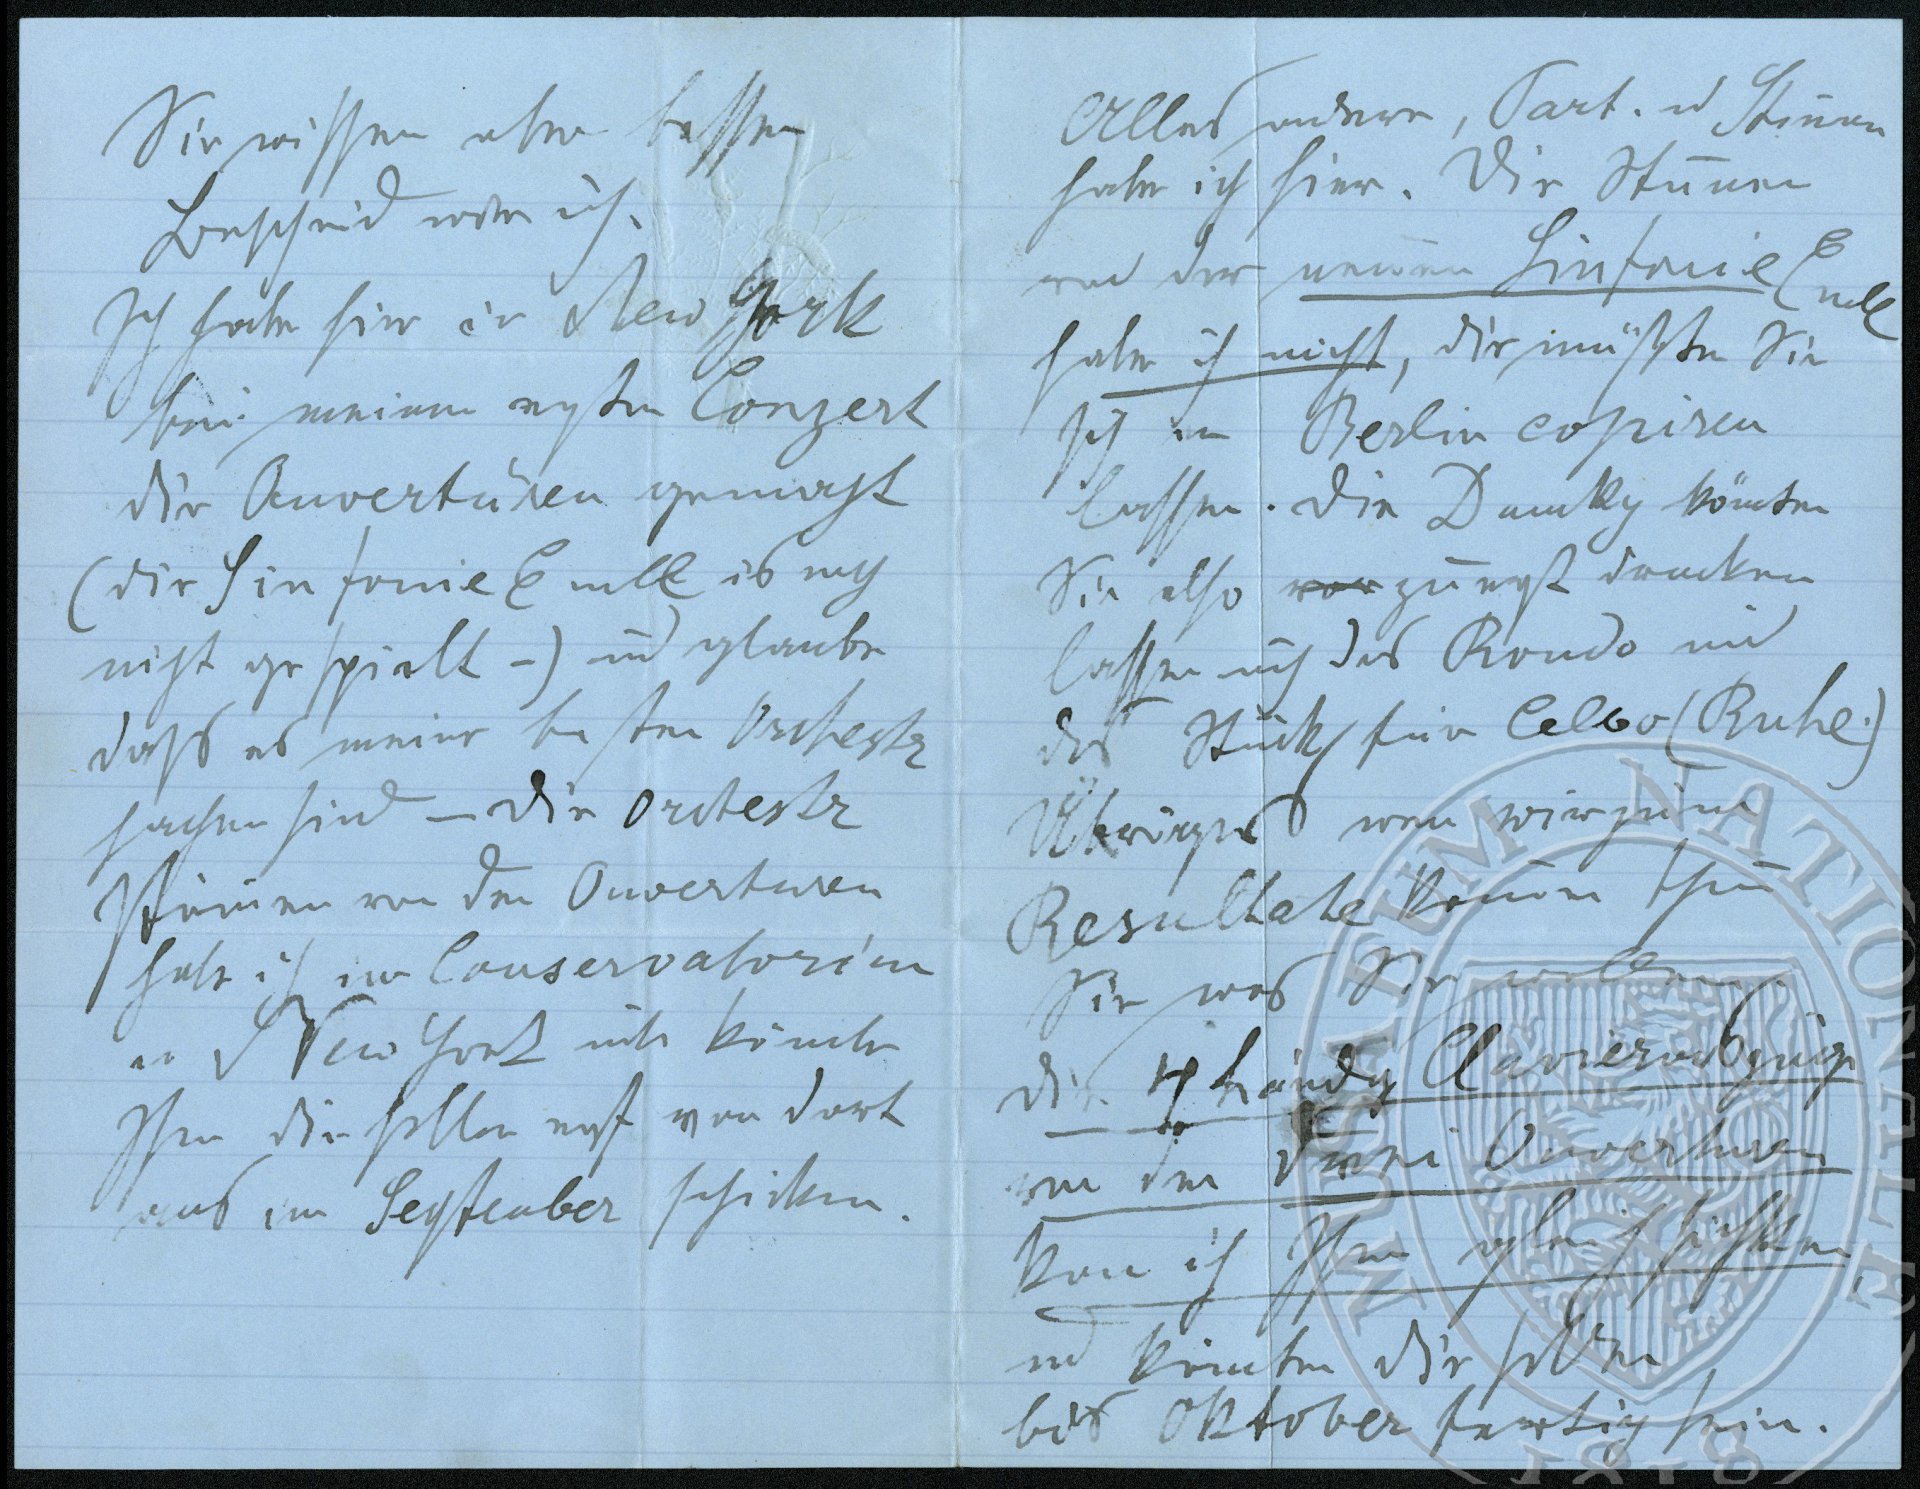 Sie wissen aber besser
Bescheid wie ich.
Ich habe hier in New York
bei meinem ersten Conzert
die Ouvertüren gemacht
(die Sinfonie E moll is noch
nicht gespielt –) und glaube
daß es meine besten Orchestr
sachen sind – Die Orchestr
Stim̄en von den Ouverturen
habe ich im Conservatorium
in New York und könnte
Ihnen dieselben erst von dort
aus im September schicken.
Alles andere, Part. und Stim̄en
habe ich hier. Die Stim̄en
von der neuen Sinfonie E moll
habe ich nicht, die müßten Sie
sich in Berlin copiren
lassen. Die Dumky könnten
Sie also vor zuerst drucken
lassen auch das Rondo und
das Stück für Cello (Ruhe.)
Übriges wen wir zum
Resultate kom̄en thun
Sie was Sie wollen.
Die 4 händig Clavierauszüge
von den drei Ouverturen
kan ich Ihnen gleich schicken,
und könnten dieselben
bis Oktober fertig sein.
MUSAEUM NATIONALE
1818